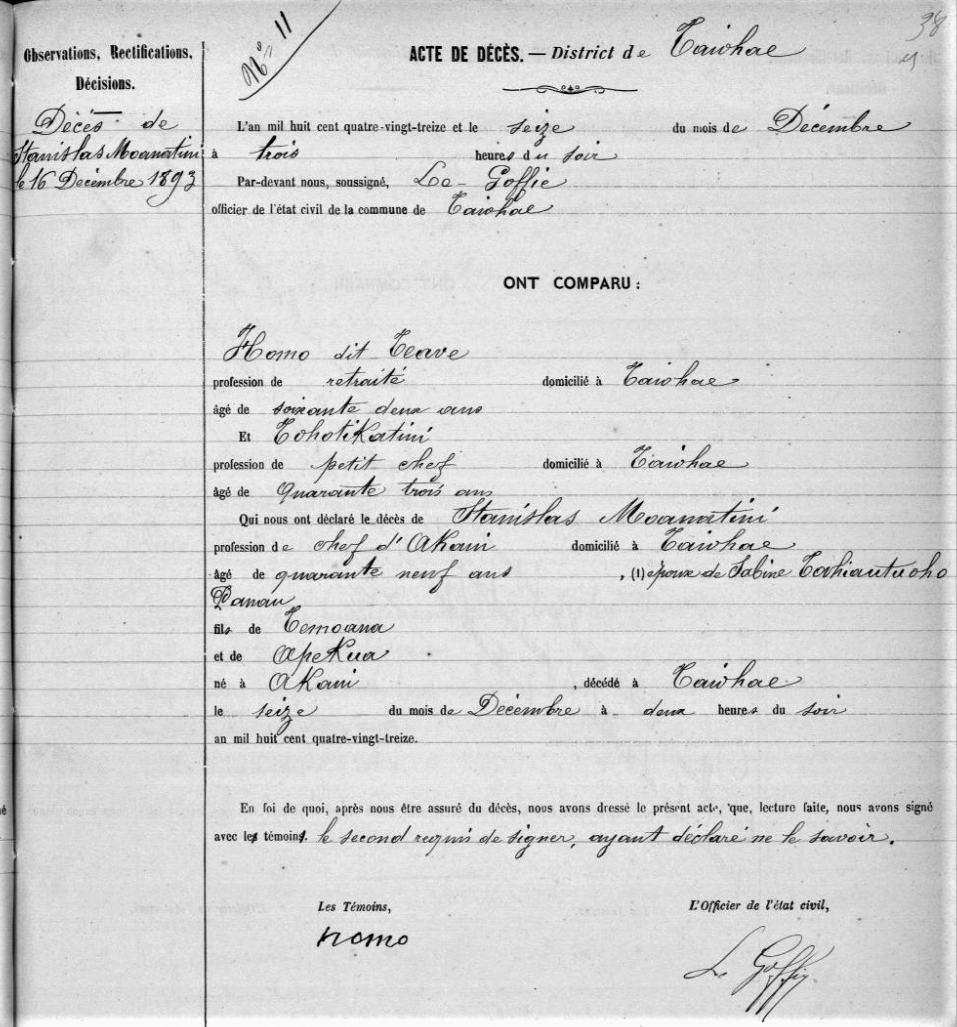 38
Nos 11
Observations, Rectifications,
Décisions.
Décés de
Stanislas Moanatini
le 16 Décembre 1893
ACTE DE DÉCÈS. — District de Taiohae
L'an mil huit cent quatre-vingt-treize et le seize du mois de Décembre
à trois heures du soir
Par-devant nous, soussigné, Le Goffic
officier de l'état civil de la commune de Taiohae
ONT COMPARU :
Homo dit Teave
profession de retraité domicilié à Taiohae
âgé de soixante deux ans
Et Tohotikatini
profession de petit chef domicilié à Taiohae
âgé de quarante trois ans
Qui nous ont déclaré le décès de Stanislas Moanatini
profession de chef d'Akani domicilié à Taiohae
âgé de quarante neuf ans , (1) époux de Sabine Tahiautuoho
Panau
fils de Temoana
et de Apekua
né à Akani , décédé à Taiohae
le seize du mois de Décembre à deux heures du soir
an mil huit cent quatre-vingt-treize.
En foi de quoi, après nous être assuré du décès, nous avons dressé le présent acte, que, lecture faite, nous avons signé
avec les témoins. le second requis de signer, ayant déclaré ne le savoir.
Les Témoins, L'Officier de l'état civil,
Homo
Le Goffic